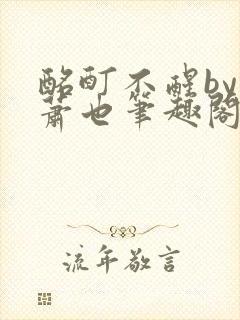 酩酊不醒by
萧也笔趣阁
流年敬言